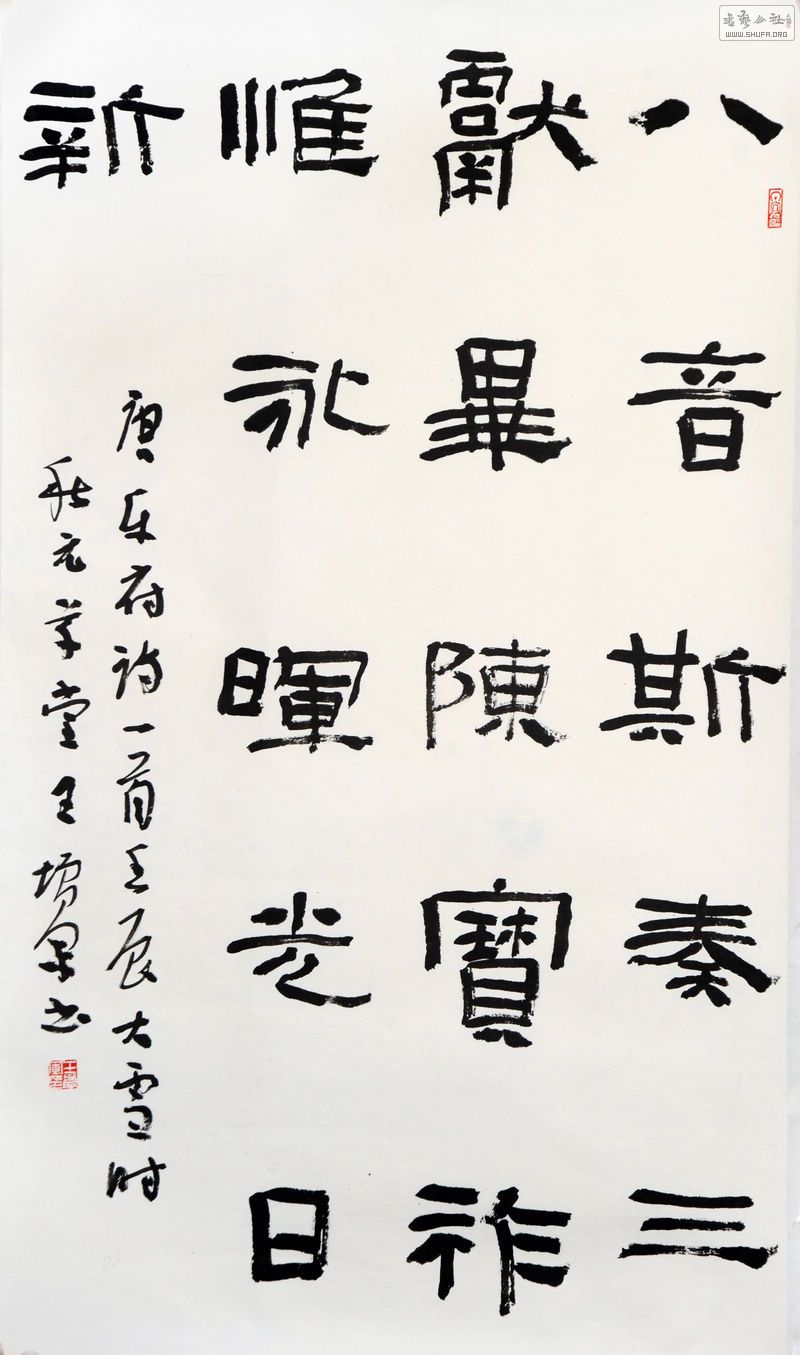 八音斯奏三
獻畢陳寶祚
惟永暉光日
新
唐乐府诗一首壬辰大雪时
秋元草堂王增军书
書藝公社
WWW.SHUFA.ORG